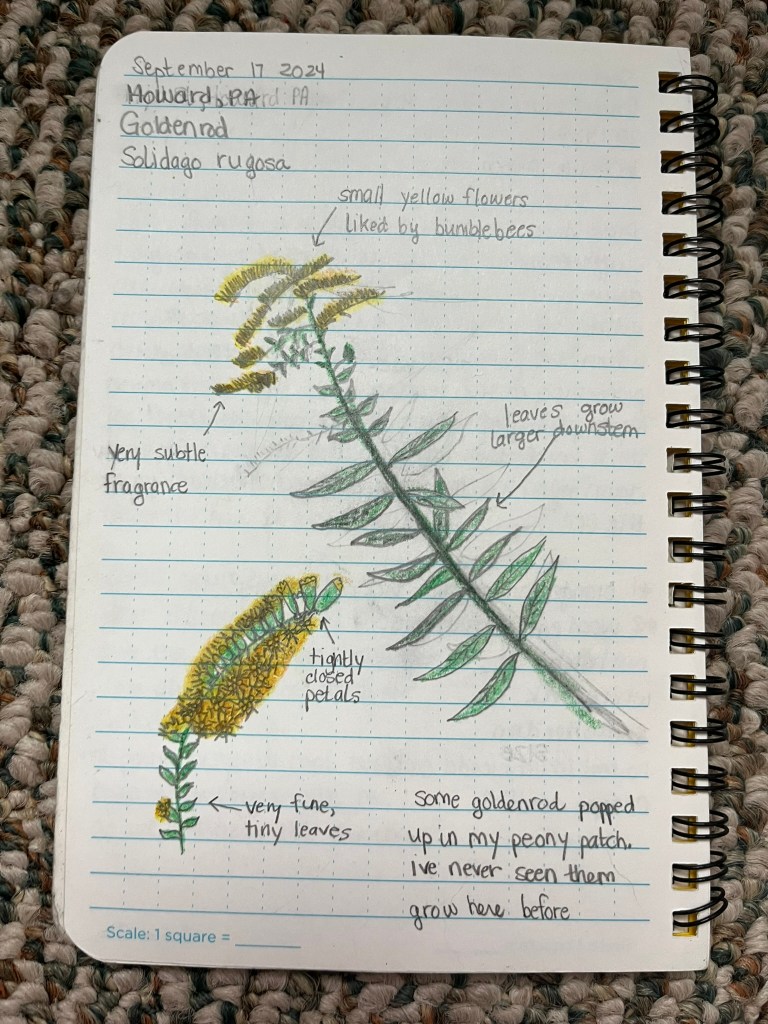 September 17 2024
Howard, PA
Goldenrod
Solidago rugosa
small yellow flowers
liked by bumblebees
leaves grow
larger downstem
very subtle
fragrance
tightly
closed
petals
very fine,
tiny leaves
some goldenrod popped
up in my peony patch.
I've never seen them
grow here before
Scale: 1 square = ______